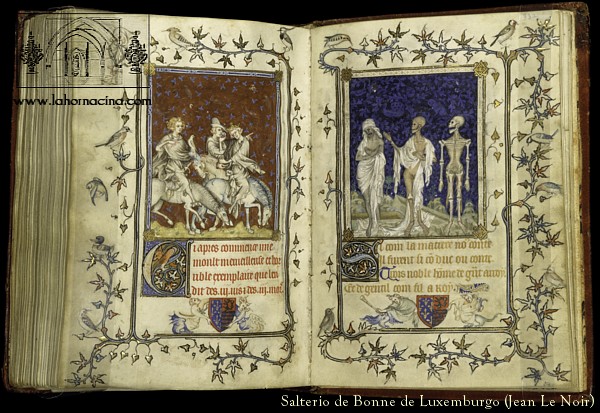 www.lahornacina.com
Ci apres commence une
moult merveilleuse et hor
rible exemplaire que len
dit des .iij. vis & des .iij. mors
Si com la matiere no conte
Il furent si co duc ou conte
Trois noble home de grant
Et de gentil com fil a roy
Salterio de Bonne de Luxemburgo (Jean Le Noir)